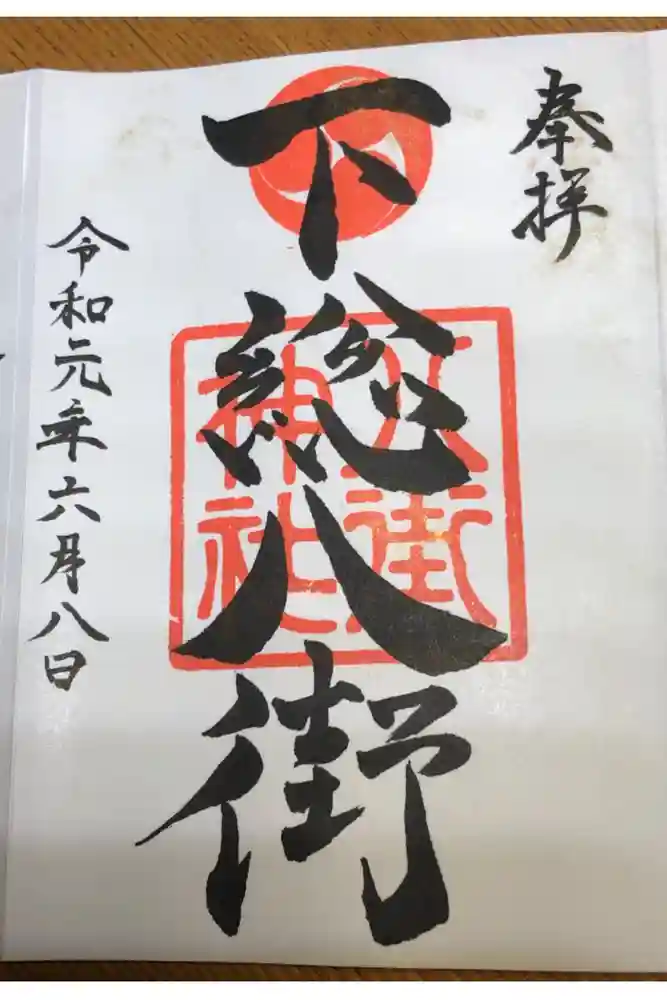 奉拝
下総八街
八街
神社
令和元年六月八日